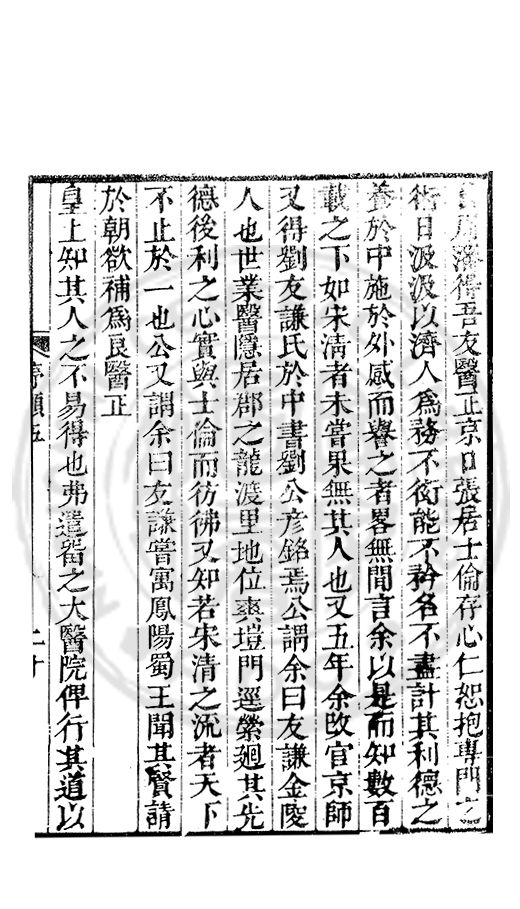 得吾友醫正京口張居士倫存心仁恕抱專門之
術日汲汲以濟人爲務不衒能不矜名不盡計其利德之
養於中施於外感而譽之者畧無間言余以是而知數百
載之下如宋淸者未嘗果無其人也又五年余改官京師
又得劉友謙氏於中書劉公彥銘焉公謂余曰友謙金陵
人也世業醫隱居郡之龍渡里地位爽塏門逕縈廻其先
德後利之心實與士倫而彷彿又知若宋淸之流者天下
不止於一也公又謂余曰友謙嘗寓鳳陽蜀王聞其賢請
於朝欲補爲良醫正
皇上知其人之不易得也弗遣畱之大醫院俾行其道以
序類五
二十